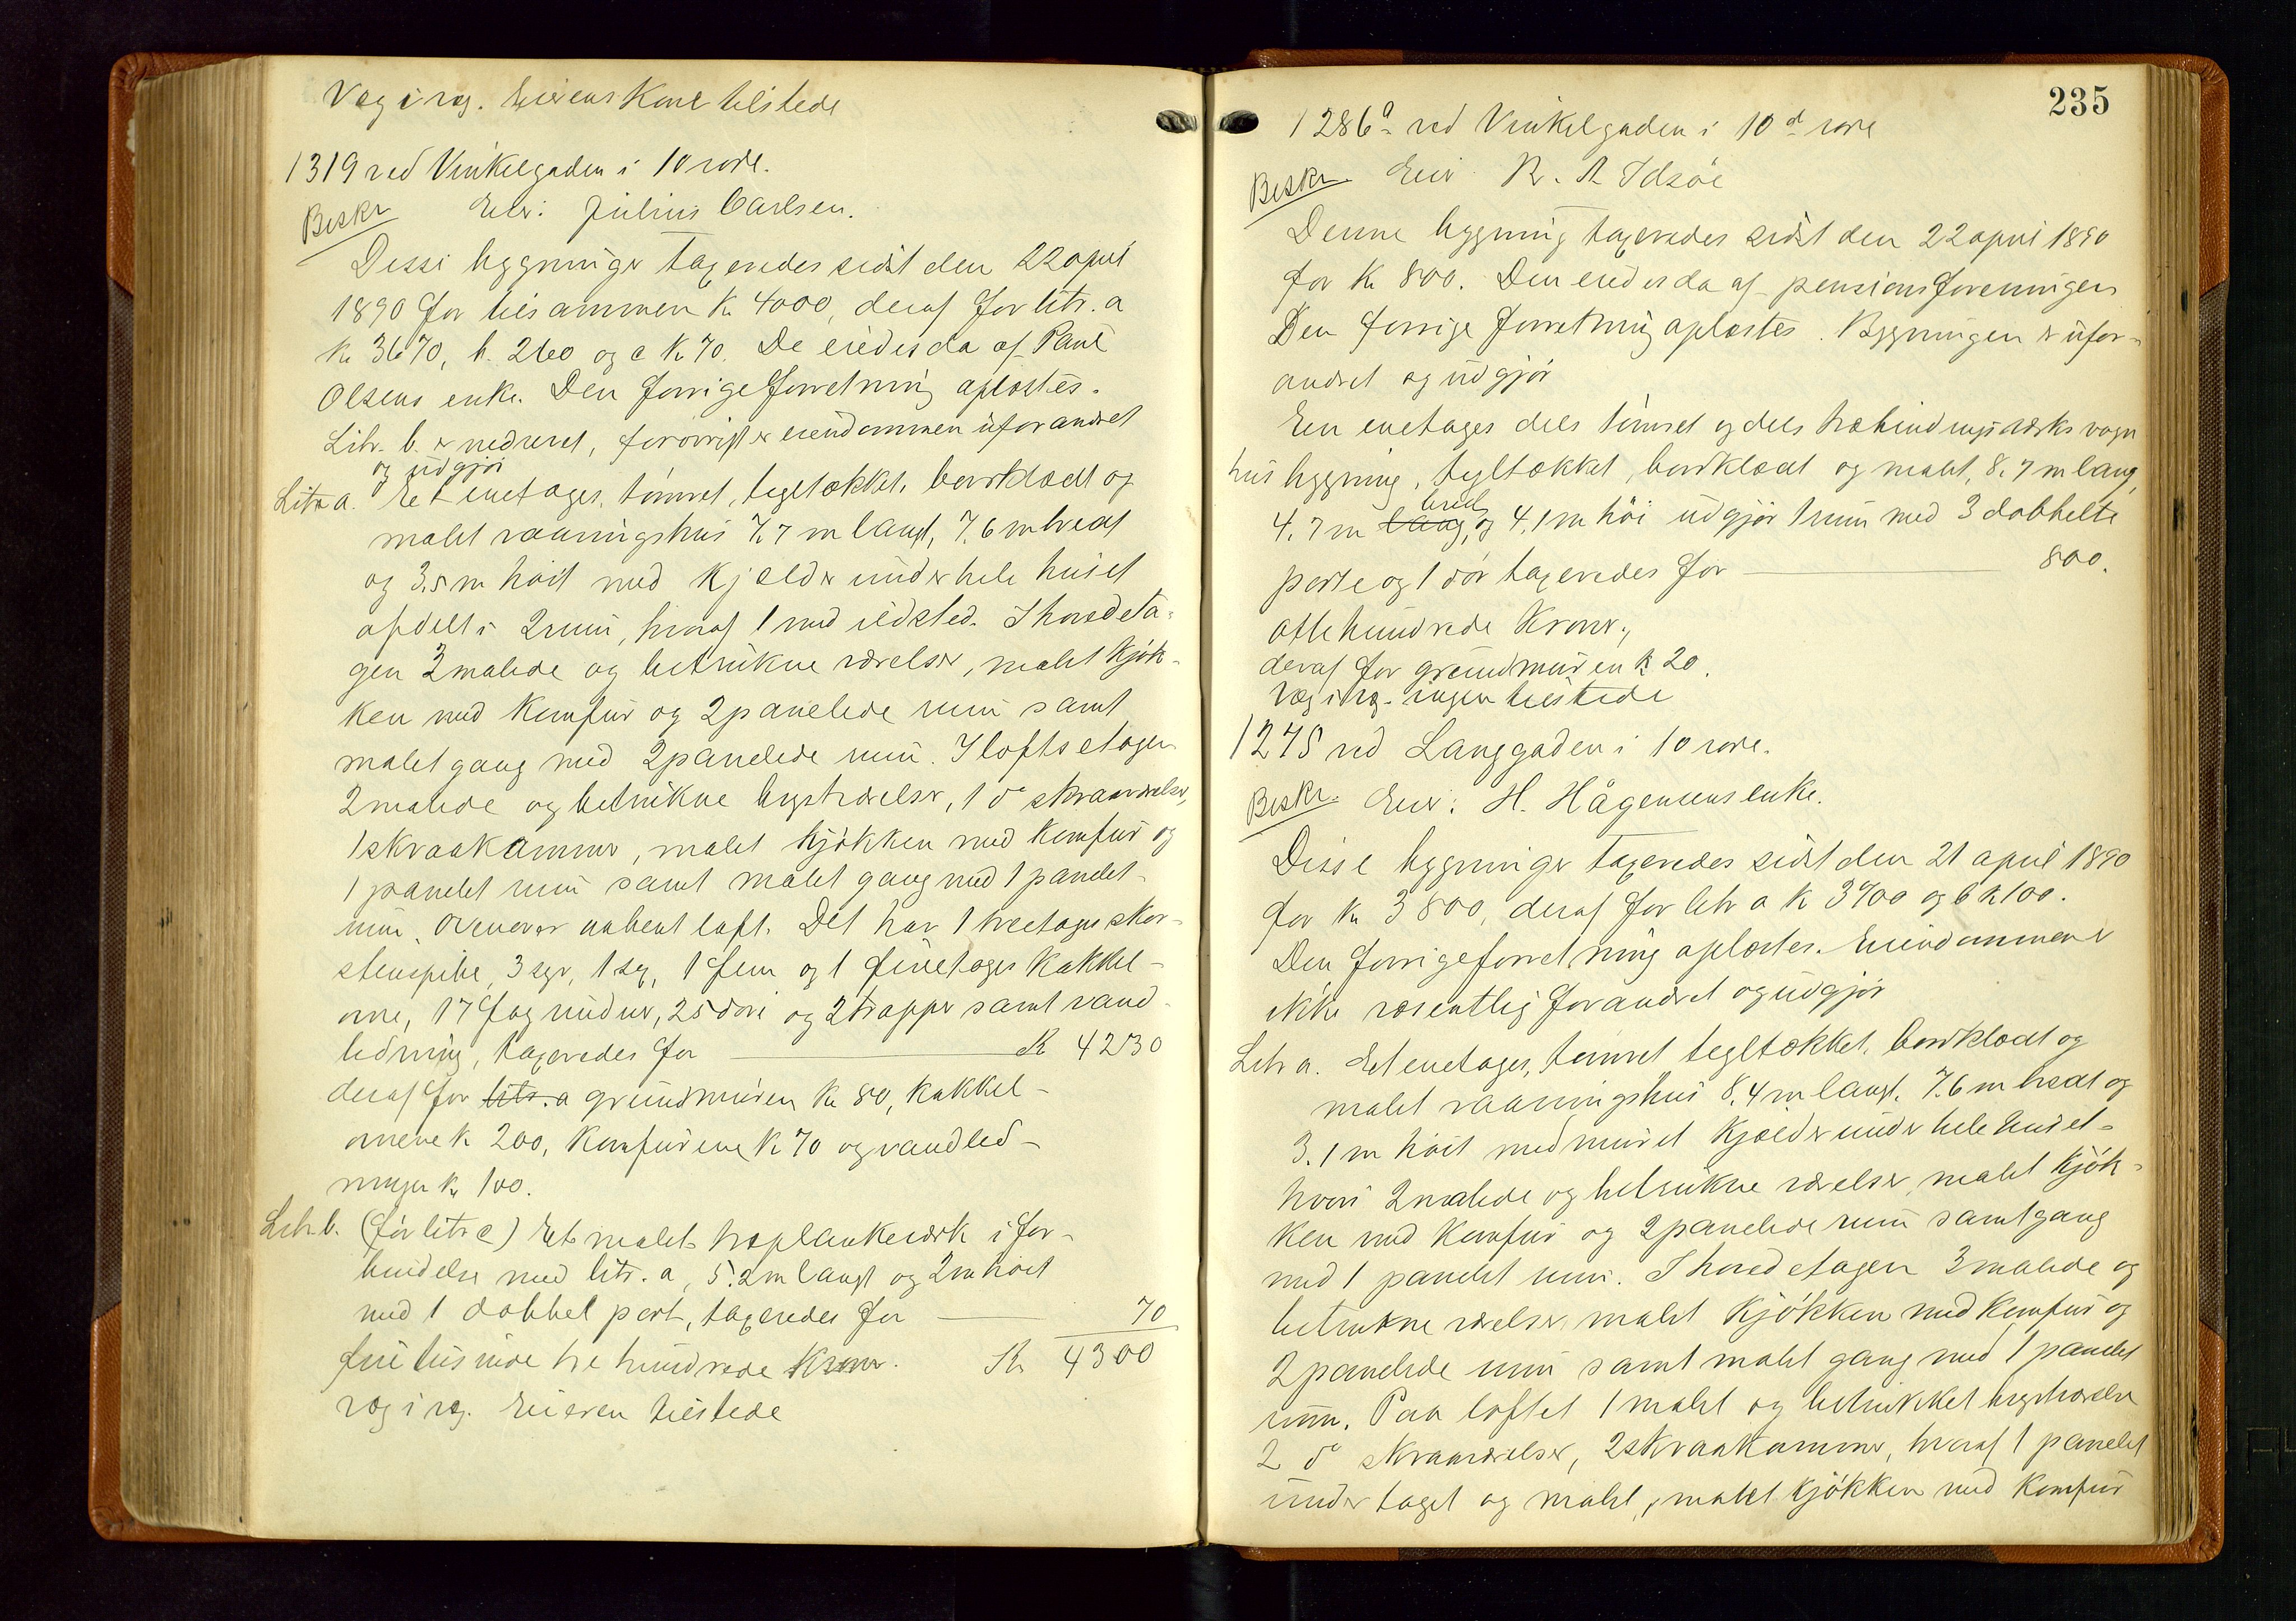 Væg i væg. Eierens Kone tilstede
1319 ved Vinkelgaden i 10 rode.
Beskr Eier: Julius Carlsen.
Disse bygninger taxeredes sidst den 22 april
1890 for tilsammen K 4000, deraf for litr. a
Kr 3670, b. 260 og c Kr 70. De eiedes da af Paul
Olsens enke. Den forrige forretning oplæstes.
Litr. b. er nedrevet, forøvrigt er eiendommen uforandret
og udgjør
Litr a. Et enetages, tømret, tegltækket, bordklædt og
malet vaaningshus 7.7 m langt, 7.6 m bredt
og 3.5 m høit med Kjælder under hele huset
afdelt i 2 rum, hvoraf 1 med ildsted. I hovedeta-
gen 3 malede og betrukne værelser, malet Kjøk-
ken med Komfur og 2 panelede rum samt
malet gang med 2 panelede rum. I loftsetagen
2 malede og betrukne brystværelser, 1 do skraaværelser,
1 skraakammer, malet kjøkken med Komfur og
1 panelet rum samt malet gang med 1 panelet
rum. Ovenover aabent loft. Det har 1 treetages skor-
stenspibe, 3 syv, 1 sex, 1 fem og 1 fireetages Kakkel-
ovne, 17 fag vinduer, 25 døre og 2 trapper samt vand-
ledning, taxeredes for K 4230
deraf for litr. a grundmuren Kr 80, Kakkel-
ovnene K 200, Komfurene K 70 og vandled-
ningen Kr 100.
Litr. b. (før litr c) Et malet træplankeværk i for-
bindelse med litr. a, 5.2 m langt og 2 m høit
med 1 dobbel port, taxeredes for 70
fire tusinde tre hundrede Kroner. Kr 4300
væg i væg. Eieren tilstede
235
1286a ved Vinkelgaden i 10de rode
Beskr. Eier R. R. Idsøe
Denne bygning taxeredes sidst den 22 april 1890
for Kr 800. Den eiedes da af pensionsforeningen
Den forrige forretning oplæstes. Bygningen er ufor-
andret og udgjør
En enetages dels tømret og dels træbindingsværks vogn
hus bygning, tegltækket, bordklædt og malet, 8.7 m lang,
4.7 m lang, bred og 4.1 m høi udgjør 1 rum med 3 dobbelte
porte og 1 dør taxeredes for 800.
otte hundrede Kroner,
deraf for grundmuren K 20.
Væg i væg. ingen tilstede
1275 ved Langgaden i 10 rode.
Beskr. Eier: H. Hågensens enke.
Disse bygninger taxeredes sidst den 21 april 1890
for Kr 3800, deraf for litr a K 3700 og b K 100.
Den forrige forretning oplæstes. Eiendommen er
ikke væsentlig forandret og udgjør
Litr a. Et enetages, tømret tegltækket, bordklædt og
malet vaaningshus 8.4 m langt, 7.6 m bredt og
3.1 m høit med muret Kjælder under hele huset-
hvori 2 malede og betrukne værelser, malet Kjøk-
ken med Komfur og 2 panelede rum samt gang
med 1 panelet rum. I hovedetagen 3 malede og
betrukne værelser, malet Kjøkken med Komfur og
2 panelede rum samt malet gang med 1 panelet
rum. Paa loftet 1 malet og betrukket brystværelse
2 do skraaværelser, 2 skraakammer, hvoraf 1 panelet
under taget og malet, malet kjøkken med Komfur